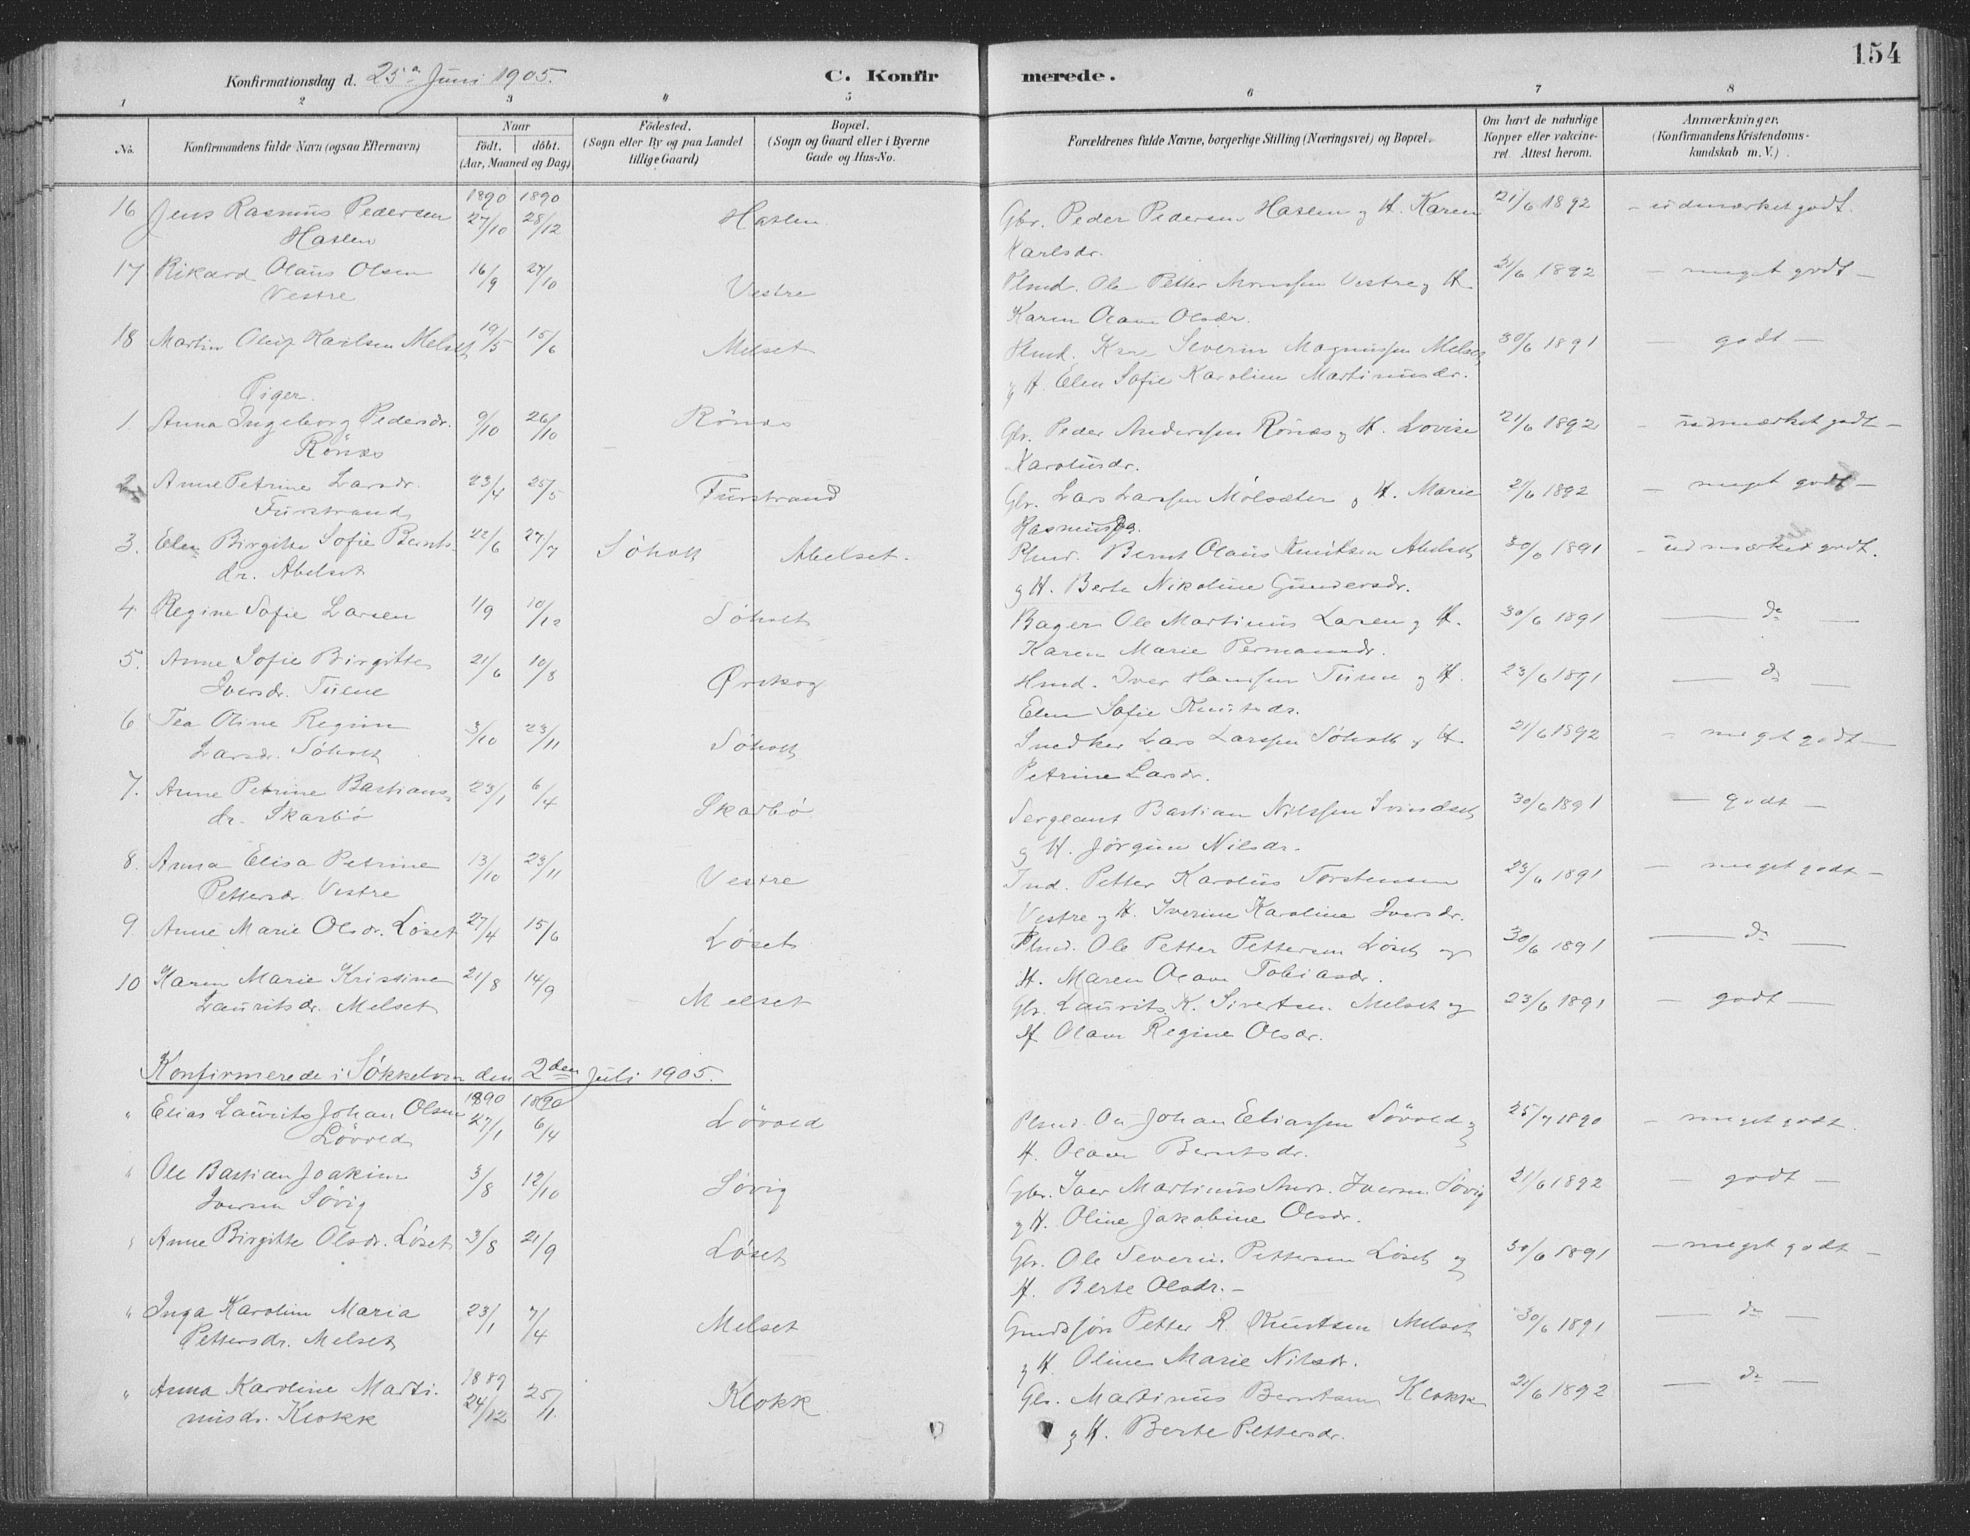 154
Konfirmationsdag d. 25de Juni 1905.
C. Konfirmerede.
1 2 3 4 5 6 7 8
No.
Konfirmandens fulde Navn (ogsaa Efternavn)
Naar
Født. døbt.
(Aar, Maaned og Dag)
Födested.
(Sogn eller By og paa Landet
tillige Gaard)
Bopæl.
(Sogn og Gaard eller i Byerne
Gade og Hus-No.
Forældrenes fulde Navne, borgerlige Stilling (Næringsvei) og Bopæl.
Om havt de naturlige
Kopper eller vakcine-
ret. Attest herom.
Anmærkninger.
(Konfirmandens Kristendoms-
kundskab m. V.)
1890 1890
16 Jens Rasmus Pedersen 27/10 28/12 Haslen Gbr. Peder Pedersen Haslen og H. Karen 21/6 1892 - udmærket godt.
Haslen Karlsdr.
17 Rikard Olaus Olsen 16/9 27/10 Vestre Plmd. Ole Petter Monssen Vestre og H. 21/6 1892 - meget godt -
Vestre Karen Olava Olsdr.
18 Martin Oluf Karlsen Melset 19/5 15/6 Melset Severin Magnussen Melset 30/6 1891 - godt -
og H. Elen Sofie Karoline Martinusdr.
Piger.
1 Anna Ingeborg Pedersdr. 9/10 26/10 Rönæs Gbr. Peder Anderssen Rönæs og H. Lovise 21/6 1892 - udmærket godt -
Rönæs Karolusdr.
2 Anne Petrine Larsdr. 23/4 25/5 Furstrand Gbr. Lars Larssen Mølsæter og H. Marie 21/6 1892 - meget godt -
Furstrand
3. Elen Birgitte Sofie Bernts- 22/6 27/7 Søholt Abelset. Plmd. Bernt Olaus Knutsen Abelset 30/6 1891 - udmærket godt.
dr. Abelset og H. Berte Nikoline Gundersdr.
4 Regine Sofie Larsen 1/9 10/12 Søholt Bager Ole Martinus Larsen og H. 30/6 1891 - do -
Karen Marie
5. Anne Sofie Birgitte 21/6 10/8 Ørskog Hmd. Iver Hanssen Tuene og H. 23/6 1891 - do -
Iversdr. Tuene Elen Sofie Knutsdr.
6 Tea Oline Regine 3/10 23/11 Søholt Snedker Lars Larssen Søholt og H. 21/6 1892 - meget godt -
Larsdr. Søholt Petrine Larsdr.
7. Anne Petrine Bastians- 23/1 6/4 Skarbø Sergeant Bastian Nilssen Svindset 30/6 1891 - godt -
dr. Skarbø og H. Jørgine Nilsdr.
8. Anna Elisa Petrine 13/10 23/11 Vestre Ind. Petter Karolus Torstensen 23/6 1891 - meget godt -
Pettersdr. Vestre Vestre og H. Iverine Karoline Iversdr.
9 Anne Marie Olsdr. Løset 27/4 15/6 Løset Plmd. Ole Petter Pettersen Løset og 30/6 1891 - do -
H. Maren Olava Tobiasdr.
10 Karen Marie Kristine 21/8 14/9 Melset Gbr. Laurits K. Sivertsen Melset og 23/6 1891 - godt -
Lauritsdr. Melset H. Olava Regine Olsdr.
Konfirmerede i Søkkelven den 2den Juli 1905.
1890 1890
" Elias Laurits Johan Olsen 27/1 6/4 Løvold Plmd. Ole Johan Eliassen Løvold og 25/7 1890 - meget godt.
Løvold H. Olava Berntsdr.
" Ole Bastian Joakim 3/8 12/10 Søvig Gbr. Iver Martinus Andr. Iversen Søvig 21/6 1892 - godt -
Iversen Søvig og H. Oline Jakobine Olsdr.
" Anne Birgitte Olsdr. Løset 3/8 21/9 Løset Gbr. Ole Severin Pettersen Løset og 30/6 1891 - meget godt -
H. Berte Olsdr. -
" Inga Karoline Maria 23/1 7/4 Melset Petter R. Knutsen Melset 30/6 1891 - do -
Pettersdr. Melset og H. Oline Marie Nilsdr.
1889
" Anna Karoline Marti- 24/12 25/1. Klokk Gbr. Martinus Berntsen Klokk 21/6 1892 - do -
nusdr. Klokk og H. Berte Pettersdr.